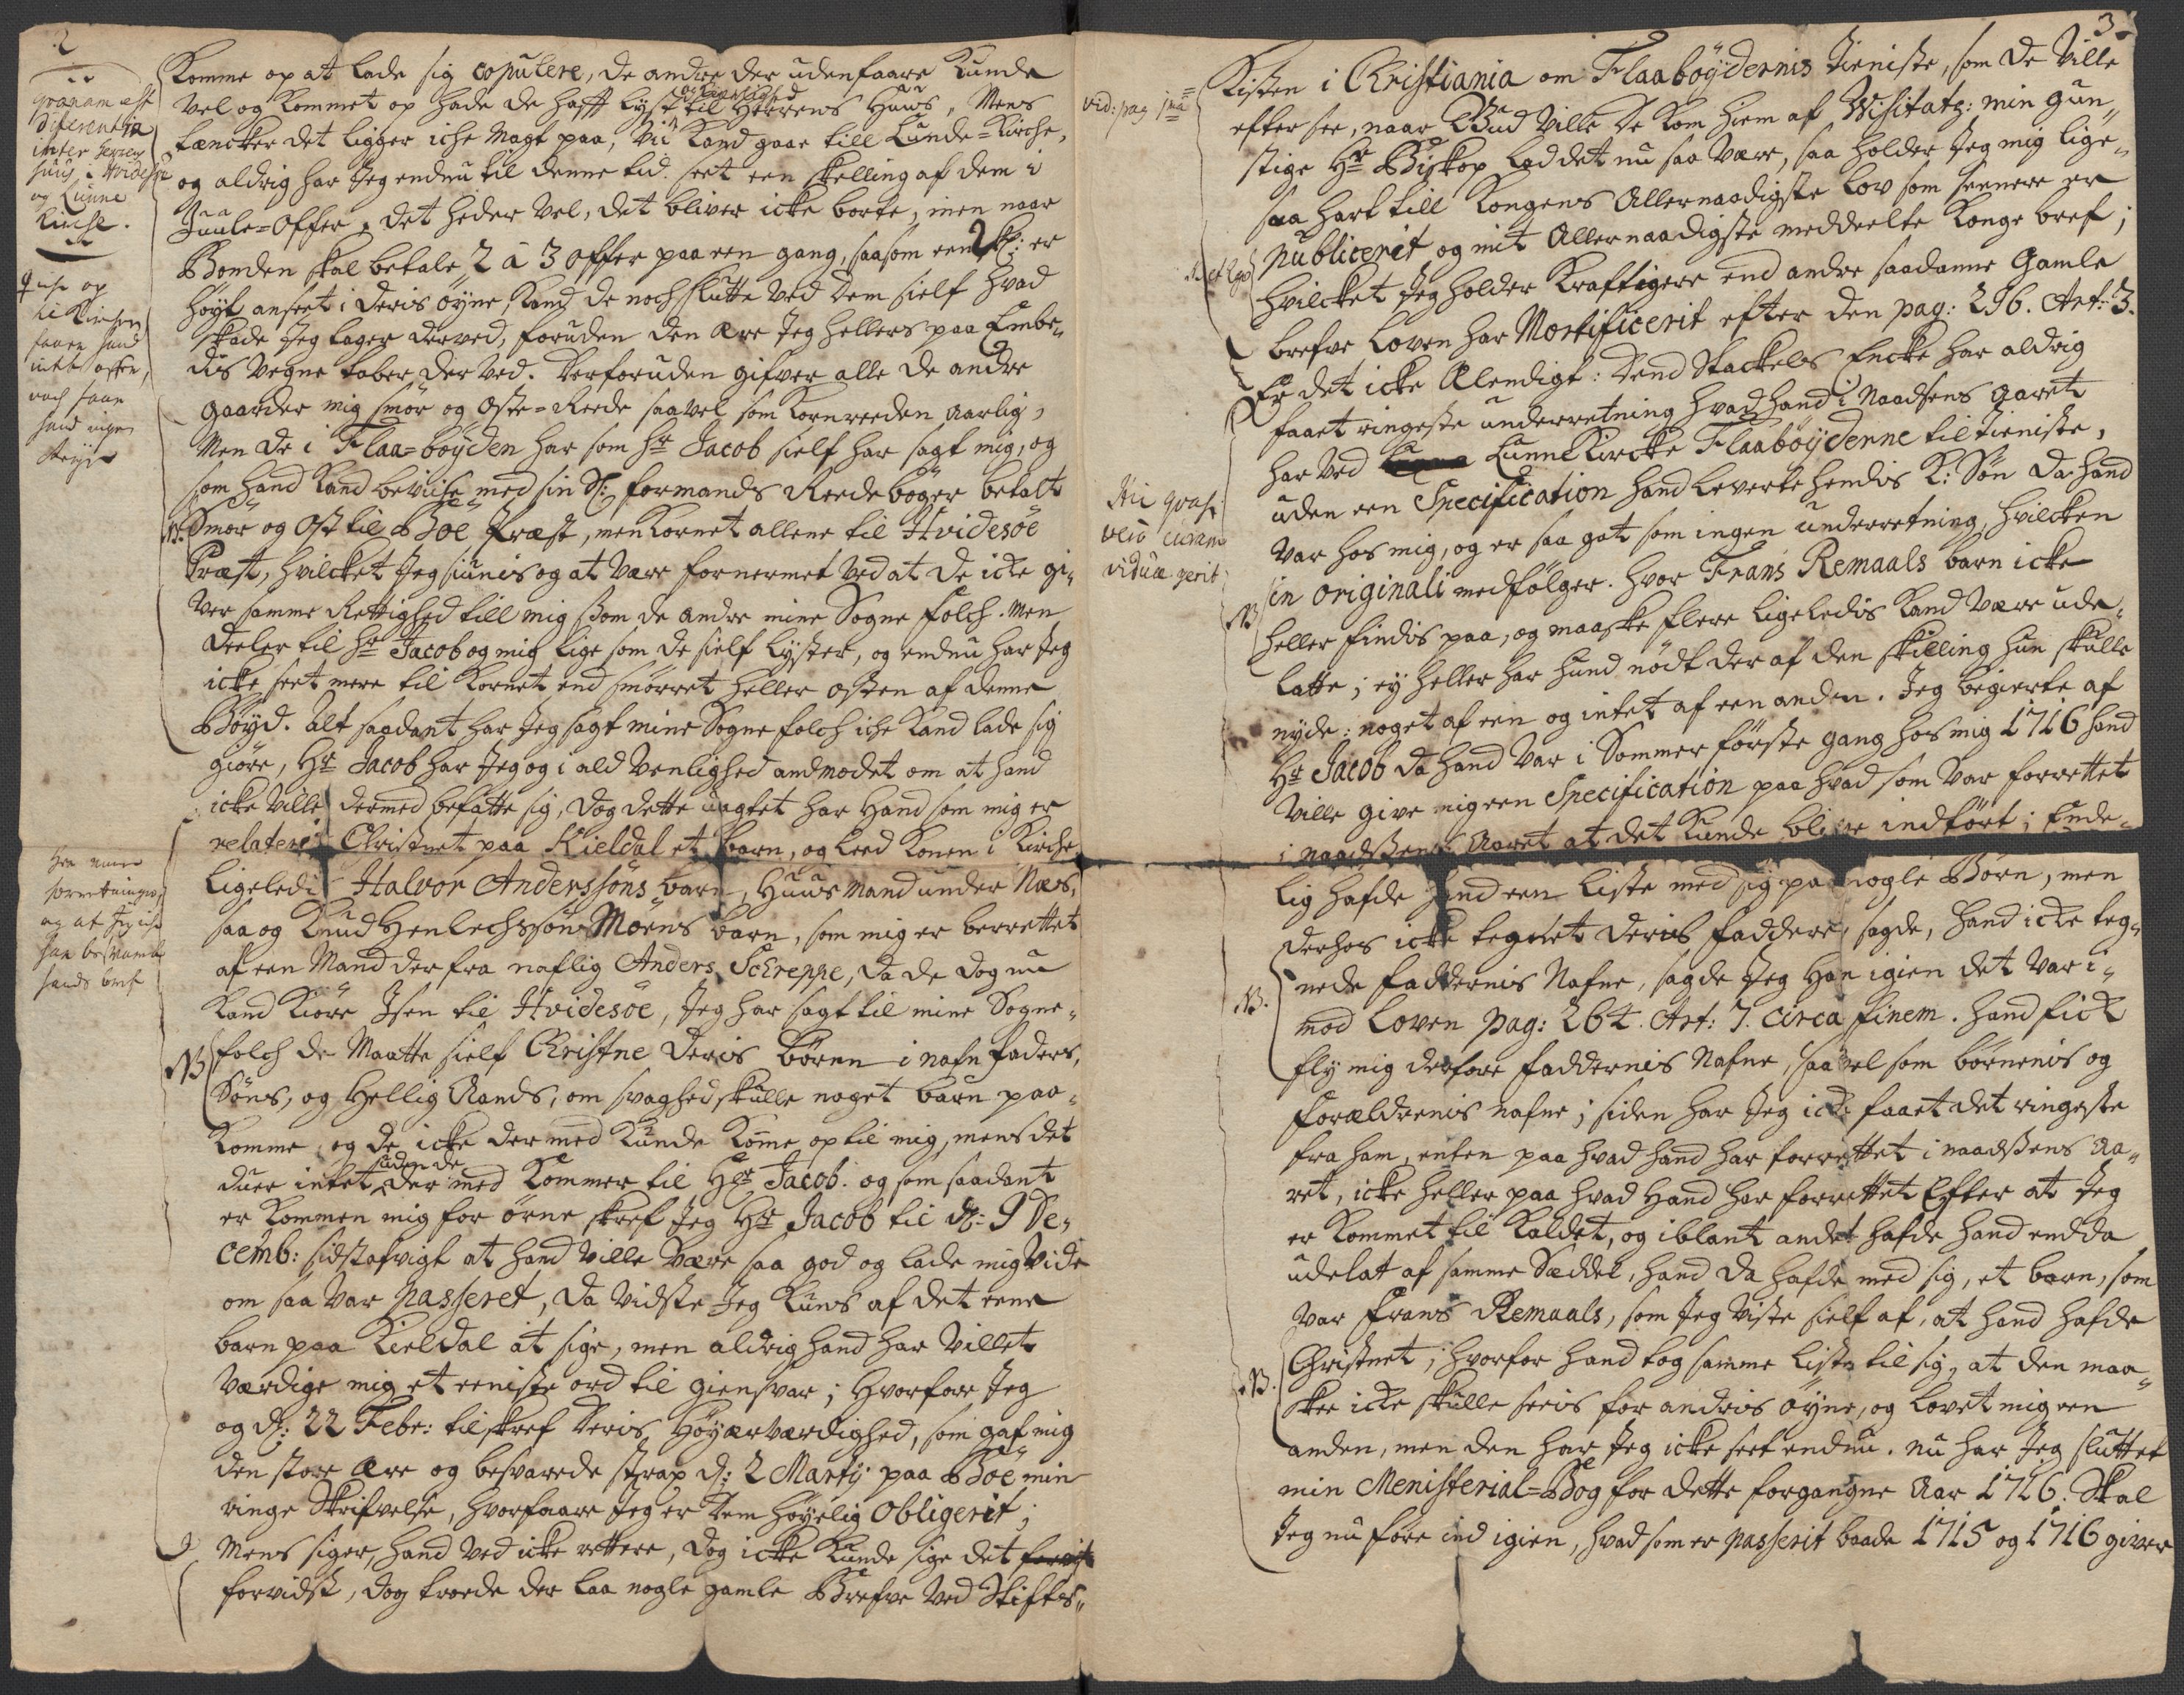 2
Komme op at lade sig copulere, de andre der udenfaare Kunde
vel og Kommet op hade de hafft Lyst til Herrens Huus, Mens
tæncker det ligger iche Magt paa, vii Kand gaar till Lunde-Kirche,
og aldrig har Jeg endnu til denne tid seet een skelling af dem i
Juule-Offer, det heder vel, det bliver icke borte, men naar
Bonden skal betale 2 à 3 offer paa een gang, saasom een 2 sk: er
høyt anseet i deris øyne, Kand de noch slutte ved dem sielf hvad
skade Jeg tager derved, foruden den ære Jeg hellers paa Embe-
dis vegne taber der ved. Derforuden gifver alle de andre
gaarder mig smør og oste-Reede saavel som Kornreeden aarlig,
Men de i Flaa-bøyden har som hr Jacob sielf har sagt mig, og
som hand Kand beviise med sin S: formands Reedebøger betalt
N. Smør og Ost til Bøe Præst, men Kornet allene til Hvidesøe
Præst, hvilcket Jeg siunis og at være fornermet ved at de icke gi-
ver samme Rettighed till mig som de andre mine Sogne folch. Men
deeler til hr Jacob og mig lige som de sielf Lyster, og endnu har Jeg
icke seet mere til Kornet end smørret heller osten af denne
Bøyd. Alt saadant har Jeg sagt mine Sogne folch iche Kand lade sig
giøre, Hr Jacob har Jeg og i ald venlighed andmodet om at hand
icke ville dermed befatte sig, dog dette uagtet har Hand som mig er
relaterit Christnet paa Kieldal et barn, og leed Konen i Kirche
Ligeledis Halvor Anderssøns barn, Huusmand under Næs,
saa og Knud Henlechssøn Moens barn, som mig er berrettet
af een Mand der fra naflig Anders Schreppe, da de dog nu
Kand Kiøre Isen til Hvidesøe, Jeg har sagt til mine Sogne-
NB folch de Maatte sielf Christne deris børn i nafn faders,
Søns, og Hellig Aands, om svaghed skulle noget barn paa-
Komme, og de icke dermed Kunde Kome op til mig, mens det
duer intet uden de der med Kommer til Hr Jacob. og som saadant
er Kommen mig for ørne skref Jeg Hr Jacob til d: 9 De-
cemb: sidstafvigt at hand ville være saa god og lade mig vide
om saa var passeret, da vidste Jeg Kuns af det eene
barn paa Kieldal at sige, men aldrig hand har villet
værdige mig et eeniste ord til giensvar; Hvorfor Jeg
og d: 22 Febr: tilskref Deris Høyærværdighed, som gaf mig
den store ære og besvarede strax d: 2 Martij paa Bøe min
ringe Skrifvelse, hvorfaare Jeg er Dem høyelig obligerit;
Mens siger, hand ved icke rettere, dog icke Kunde sige det
forvidst, dog troede der laa nogle gamle Brefve ved Stifts-
qvanam est
diferentia
inter Herrens
huus i Hvidesøe
og Lunne
Kirche.
3
Kisten i Christiania om Flaabøydernis tieniste, som de ville
vid: pag
efter see, naar Gud ville De Kom hiem af Visitatz: min gun-
stige Hr Biskop lad det nu saa være, saa holder Jeg mig lige-
saa hart till Kongens Allernaadigste Lov som seenere er
publicerit og mit Allernaadigste meddeelte Konge bref;
hvilcket Jeg holder Kraftigere end andre saadanne gamle
brefve Loven har Mortificerit efter den pag: 296. Art: 3.
Er det icke Elendigt: Dend Stackels Encke har aldrig
faaet ringeste underretning hvad hand i Naadsens aaret
har ved Lunne Kircke Flaabøyderne til tieniste,
uden een Specification hand leverte hendis K: Søn da hand
var hos mig, og er saa got som ingen underretning, hvilcken
in originali medfølger. hvor Frans Remaals barn icke
NB heller findis paa, og maaske flere ligeledis Kand være ude-
latte; ey heller har hund nødt der af den skilling hun skulle
nyde: noget af een og intet af een anden. Jeg begierte af
Hr Jacob da hand var i Sommer første gang hos mig 1716 hand
ville give mig een Specification paa hvad som var forrettet
i naadsens Aaret at det Kunde blive indført; Ende-
lig hafde hand een Liste med sig paa nogle Børn, men
derhos icke tegnet deris faddere, sagde, hand icke teg-
NB. nede faddernis Nafne, sagde Jeg Ham igien det var i-
mod Loven pag: 264. Art: 7. circa finem. hand fick
fly mig derfore faddernis Nafne, saavel som børnenis og
forældrenis nafne; siden har Jeg icke faaet det ringeste
fra ham, enten paa hvad hand har forrettet i naadsens Aa-
ret, icke heller paa hvad Hand har forrettet Efter at Jeg
er Kommet til Kaldet, og iblant andet hafde hand endda
udelat af samme Sæddel, hand da hafde med sig, et barn, som
var Frans Remaals, som Jeg viste sielf af, at hand hafde
Christnet; hvorfor hand tog samme Liste til sig, at den maa-
NB. skee icke skulle seeis for andris øyne, og lovet mig een
anden, men den har Jeg icke seet endnu. nu har Jeg sluttet
min Menisterial-Bog for dette forgangne Aar 1716. Skal
Jeg nu føre ind igien, hvad som er passerit baade 1715 og 1716 giver